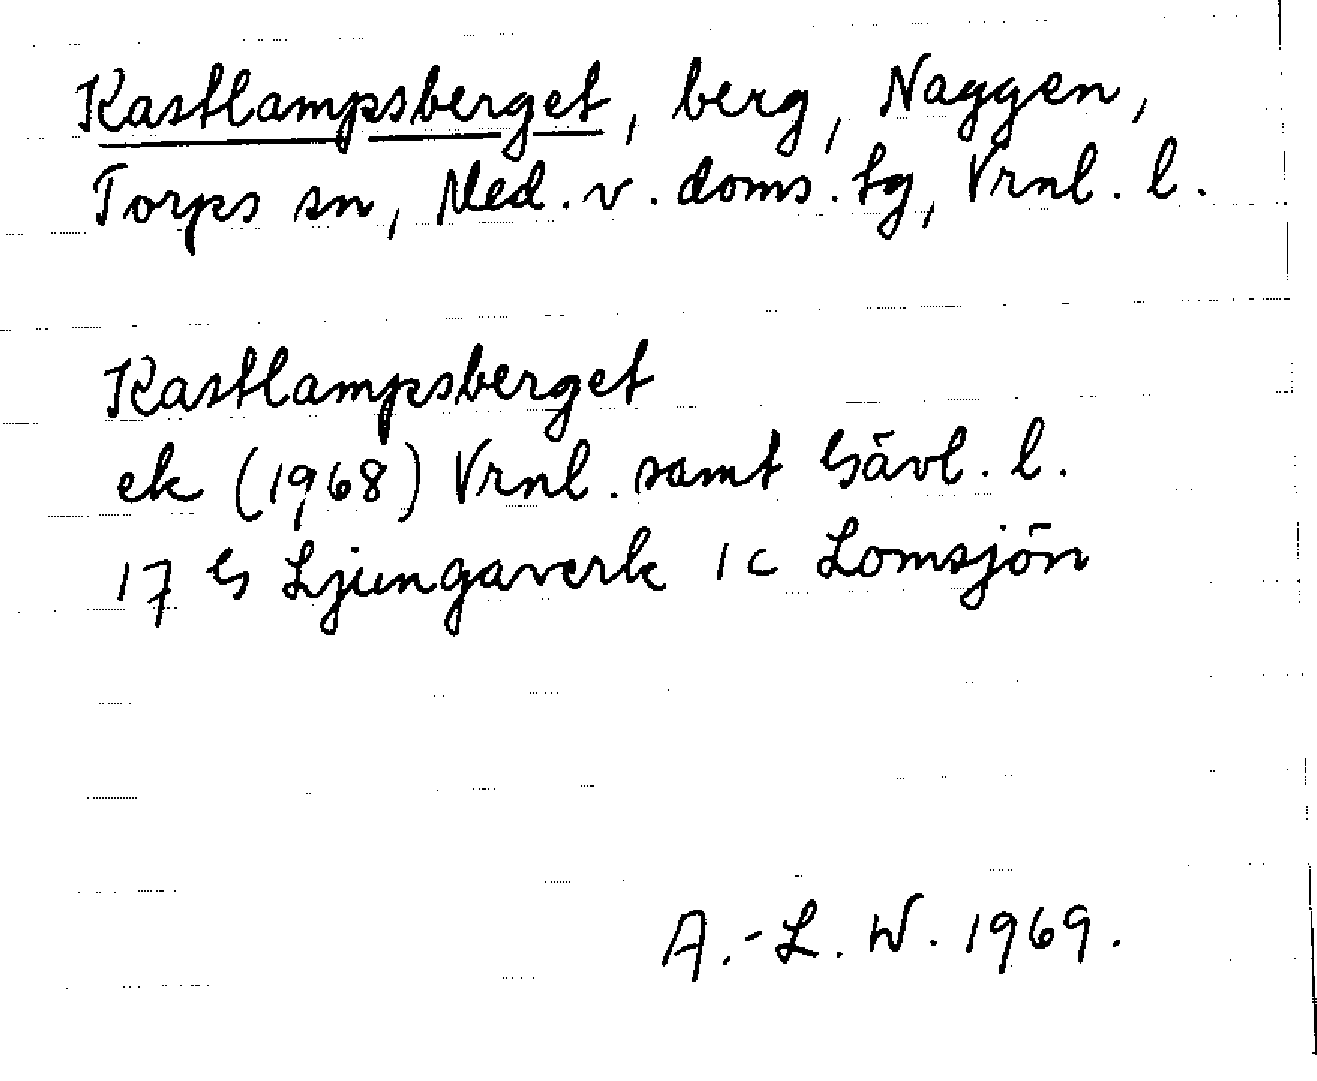 Kastlampsberget, berg, Naggen,
Torps sn, Med. v. doms. tg, Vrnl. l.
Kastlampsberget
ek (1968) Vrnl. samt Gävl. l.
17 G Ljungaverk 1c Lomsjön
A.-L. W. 1969.